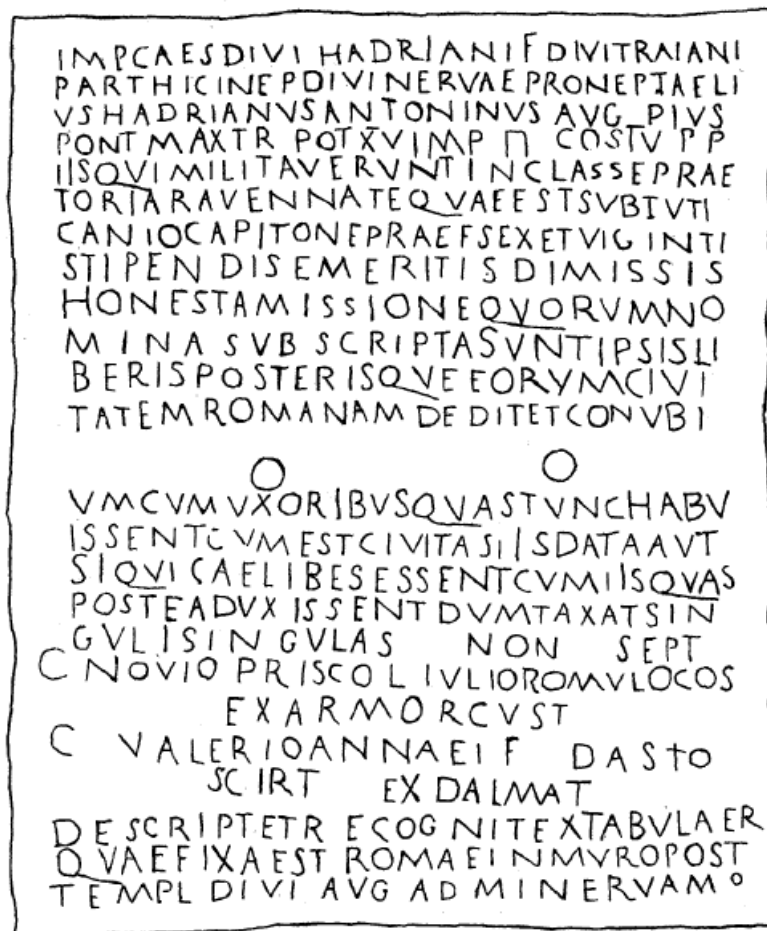 IMPCAESDIVI HADRIANIFDIVITRAIANI
PARTHICINEPDIVINERVAEPRONEPTAELI
VSHADRIANVSANTONINVS AVG PIVS
PONT MAXTR POTXVIMP II COSIV PP
IISQVIMILITAVERVNTINCLASSEPRAE
TORIARAVENNATEQVAEESTSVBTVTI
CANIOCAPITONEPRAEFSEXETVIGINTI
STIPENDISEMERITISDIMISSIS
HONESTAMISSIONEQVORVMNO
MINASVBSCRIPTASVNTIPSISLI
BERISPOSTERISQVEEORVMCIVI
TATEMROMANAMDEDITETCONVBI
VMCVMVXORIBVSQVASTVNCHABV
ISSENTCVMESTCIVITASIISDATAAVT
SIQVICAELIBESESSENTCVMIISQVAS
POSTEADVXISSENTDVMTAXATSIN
GVLISINGVLAS NON SEPT
C NOVIO PRISCO L IVLIOROMVLOCOS
EXARMORCVST
C VALERIOANNAEIF DASTO
SCIRT EX DALMAT
DESCRIPTETRECOGNITEXTABVLAER
QVAEFIXAEST ROMAEINMVROPOST
TEMPL DIVI AVG ADMINERVAM